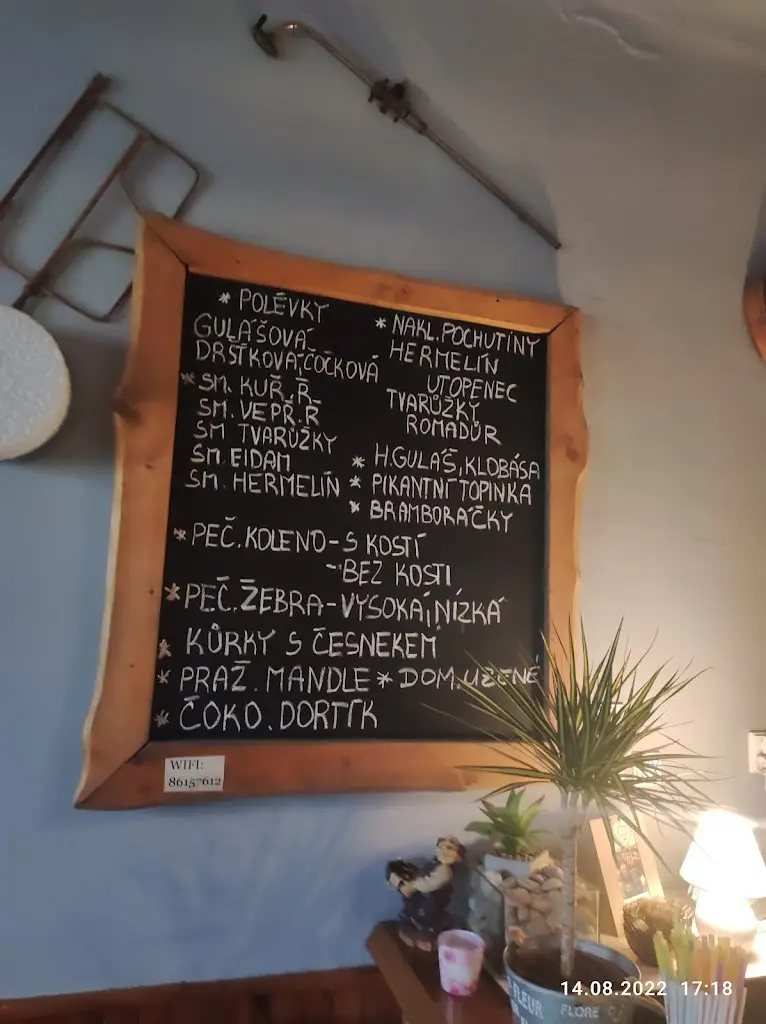 * POLÉVKY
GULÁŠOVÁ
DRŠŤKOVÁ, ČOČKOVÁ
* SM. KUŘ. Ř.
SM. VEPŘ. Ř
SM TVARŮŽKY
SM. EIDAM
SM. HERMELÍN
* NAKL. POCHUTINY
HERMELÍN
UTOPENEC
TVARŮŽKY
ROMADŮR
* H. GULÁŠ, KLOBÁSA
* PIKANTNÍ TOPINKA
* BRAMBORÁČKY
* PEČ. KOLENO - S KOSTÍ
- BEZ KOSTI
* PEČ. ŽEBRA - VYSOKÁ, NÍZKÁ
* KŮRKY S ČESNEKEM
* PRAŽ. MANDLE * DOM. UZENÉ
* ČOKO. DORTÍK
WIFI:
86157612
FLEUR FLORE
14.08.2022 17:18